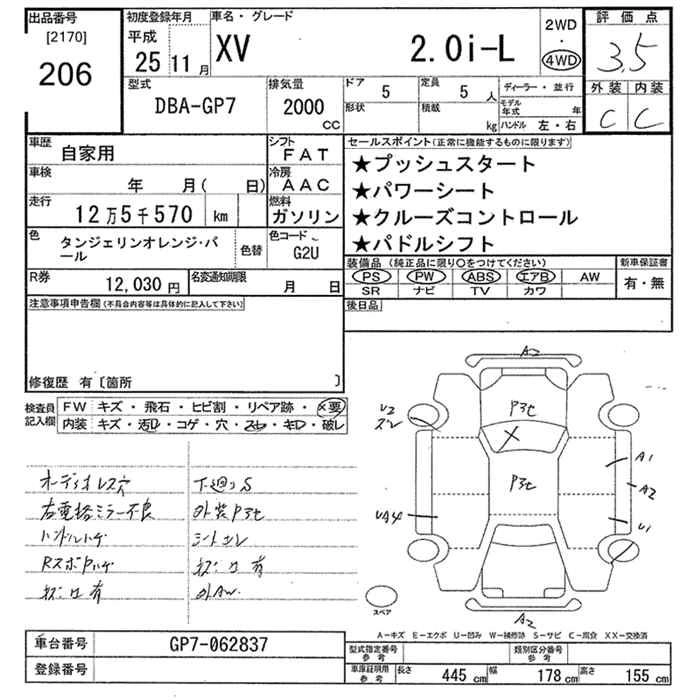 出品番号
[2170]
206
初度登録年月
平成
25 11月
車名・グレード
XV 2.0i-L
2WD
・
4WD
評価点
3.5
外装 内装
C C
型式
DBA-GP7
排気量
2000
CC
ドア 5
形状
定員 5 人
積載 kg
ディーラー・並行
モデル年式 年
ハンドル 左・右
車歴
自家用
シフト
FAT
車検
年 月( 日)
冷房
AAC
走行
12万5千570 km
燃料
ガソリン
色
タンジェリンオレンジ・パール
色替
色コード
G2U
R券
12,030 円
名変通知期限
月 日
セールスポイント(正常に機能するものに限ります)
★プッシュスタート
★パワーシート
★クルーズコントロール
★パドルシフト
装備品(純正品に限り○をつけてください)
PS PW ABS エアB AW
SR ナビ TV カワ
新車保証書
有・無
後日品
注意事項申告欄(不具合内容等は具体的に記入して下さい)
修復歴 有〔箇所 〕
検査員
記入欄
FW キズ・飛石・ヒビ割・リペア跡・×要
内装 キズ・汚レ・コゲ・穴・スレ・キレ・破レ
オーディオレス穴
下廻りS
右電格ミラー不良
外装Pヨセ
ハンドルハゲ
シートスレ
外AW.
A2
Pヨセ
X
U2
A1
Pヨセ
A2
UA4
U1
A2
スペア
A-キズ E-エクボ U-凹み W-補修跡 S-サビ C-腐食 XX-交換済
車台番号
GP7-062837
登録番号
型式指定番号
参考
類別区分番号
参考
車庫証明用
参考
長さ 445 cm 幅 178 cm 高さ 155 cm